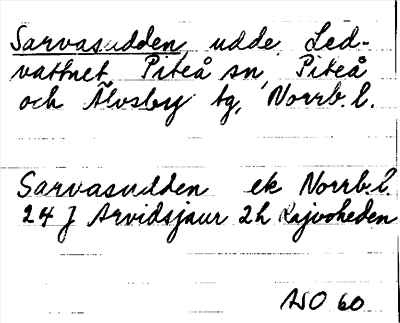 Sarvasudden, udde, Led-
vattnet, Piteå sn, Piteå
och Älvsby tg, Norrb. l.
Sarvasudden ek Norrb. l.
24 J Arvidsjaur 2h
60